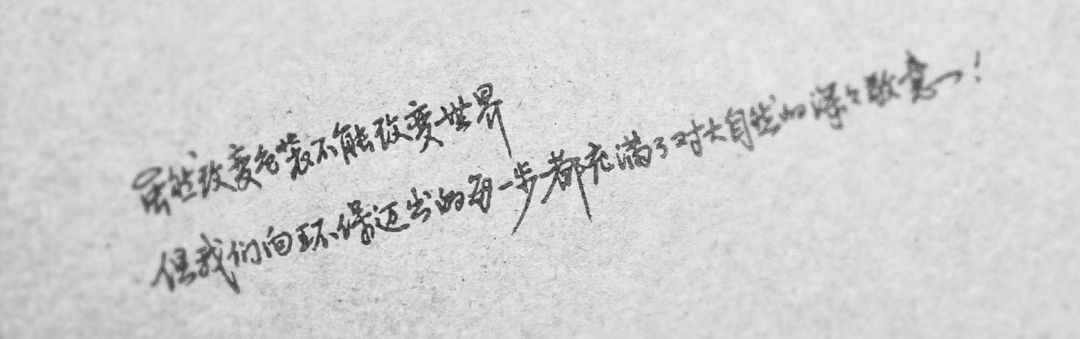 虽然改变包装不能改变世界
但我们向环保迈出的每一步都充满了对大自然的深深敬意！